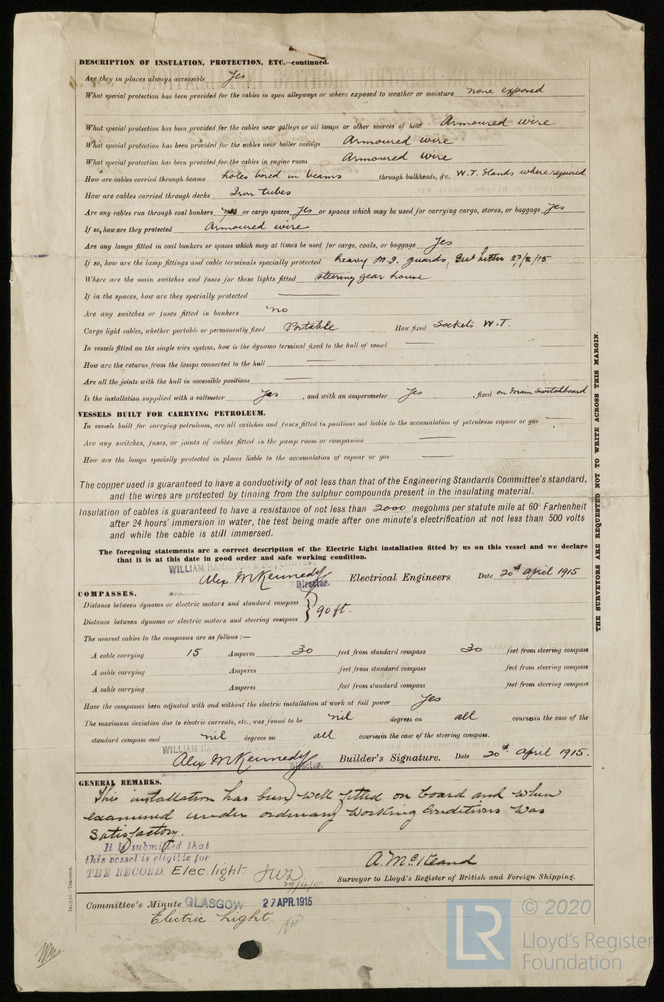 DESCRIPTION OF INSULATION, PROTECTION, ETC.—continued.
Are they in places always accessible Yes
What special protection has been provided for the cables in open alleyways or where exposed to weather or moisture none exposed
What special protection has been provided for the cables near galleys or oil lamps or other sources of heat Armoured wire
What special protection has been provided for the cables near boiler casings Armoured wire
What special protection has been provided for the cables in engine room Armoured wire
How are cables carried through beams holes bored in beams through bulkheads, &c. W.T. Glands where required
How are cables carried through decks Iron tubes
Are any cables run through coal bunkers yes or cargo spaces Yes or spaces which may be used for carrying cargo, stores, or baggage Yes
If so, how are they protected Armoured wire
Are any lamps fitted in coal bunkers or spaces which may at times be used for cargo, coals, or baggage Yes
If so, how are the lamp fittings and cable terminals specially protected heavy M.I. guards, 27/2/15
Where are the main switches and fuses for these lights fitted steering gear house
If in the spaces, how are they specially protected
Are any switches or fuses fitted in bunkers no
Cargo light cables, whether portable or permanently fixed Portable How fixed Sockets W.T.
In vessels fitted on the single wire system, how is the dynamo terminal fixed to the hull of vessel
How are the returns from the lamps connected to the hull
Are all the joints with the hull in accessible positions
Is the installation supplied with a voltmeter Yes, and with an amperemeter Yes, fixed on main switchboard
VESSELS BUILT FOR CARRYING PETROLEUM.
In vessels built for carrying petroleum, are all switches and fuses fitted in positions not liable to the accumulation of petroleum vapour or gas
Are any switches, fuses, or joints of cables fitted in the pump room or companion
How are the lamps specially protected in places liable to the accumulation of vapour or gas
The copper used is guaranteed to have a conductivity of not less than that of the Engineering Standards Committee's standard,
and the wires are protected by tinning from the sulphur compounds present in the insulating material.
Insulation of cables is guaranteed to have a resistance of not less than 2000 megohms per statute mile at 60° Farhenheit
after 24 hours' immersion in water, the test being made after one minute's electrification at not less than 500 volts
and while the cable is still immersed.
The foregoing statements are a correct description of the Electric Light installation fitted by us on this vessel and we declare
that it is at this date in good order and safe working condition.
WILLIAM HAMILTON
Alex McKennedy Director. Electrical Engineers Date 20th April 1915
COMPASSES.
Distance between dynamo or electric motors and standard compass
Distance between dynamo or electric motors and steering compass
90 ft.
The nearest cables to the compasses are as follows:—
A cable carrying 15 Amperes 30 feet from standard compass 30 feet from steering compass
A cable carrying Amperes feet from standard compass feet from steering compass
A cable carrying Amperes feet from standard compass feet from steering compass
Have the compasses been adjusted with and without the electric installation at work at full power Yes
The maximum deviation due to electric currents, etc., was found to be nil degrees on all course in the case of the
standard compass and nil degrees on all course in the case of the steering compass.
WILLIAM HA
Alex McKennedy Director. Builder's Signature. Date 20th April 1915.
GENERAL REMARKS.
This installation has been well fitted on board and when
examined under ordinary working conditions was
satisfactory.
It is submitted that
this vessel is eligible for
THE RECORD. Elec. light.
29/4/15
Surveyor to Lloyd's Register of British and Foreign Shipping.
Committee's Minute GLASGOW 27 APR. 1915
Electric Light
THE SURVEYORS ARE REQUESTED NOT TO WRITE ACROSS THIS MARGIN.
© 2020
LR
Lloyd's Register
Foundation